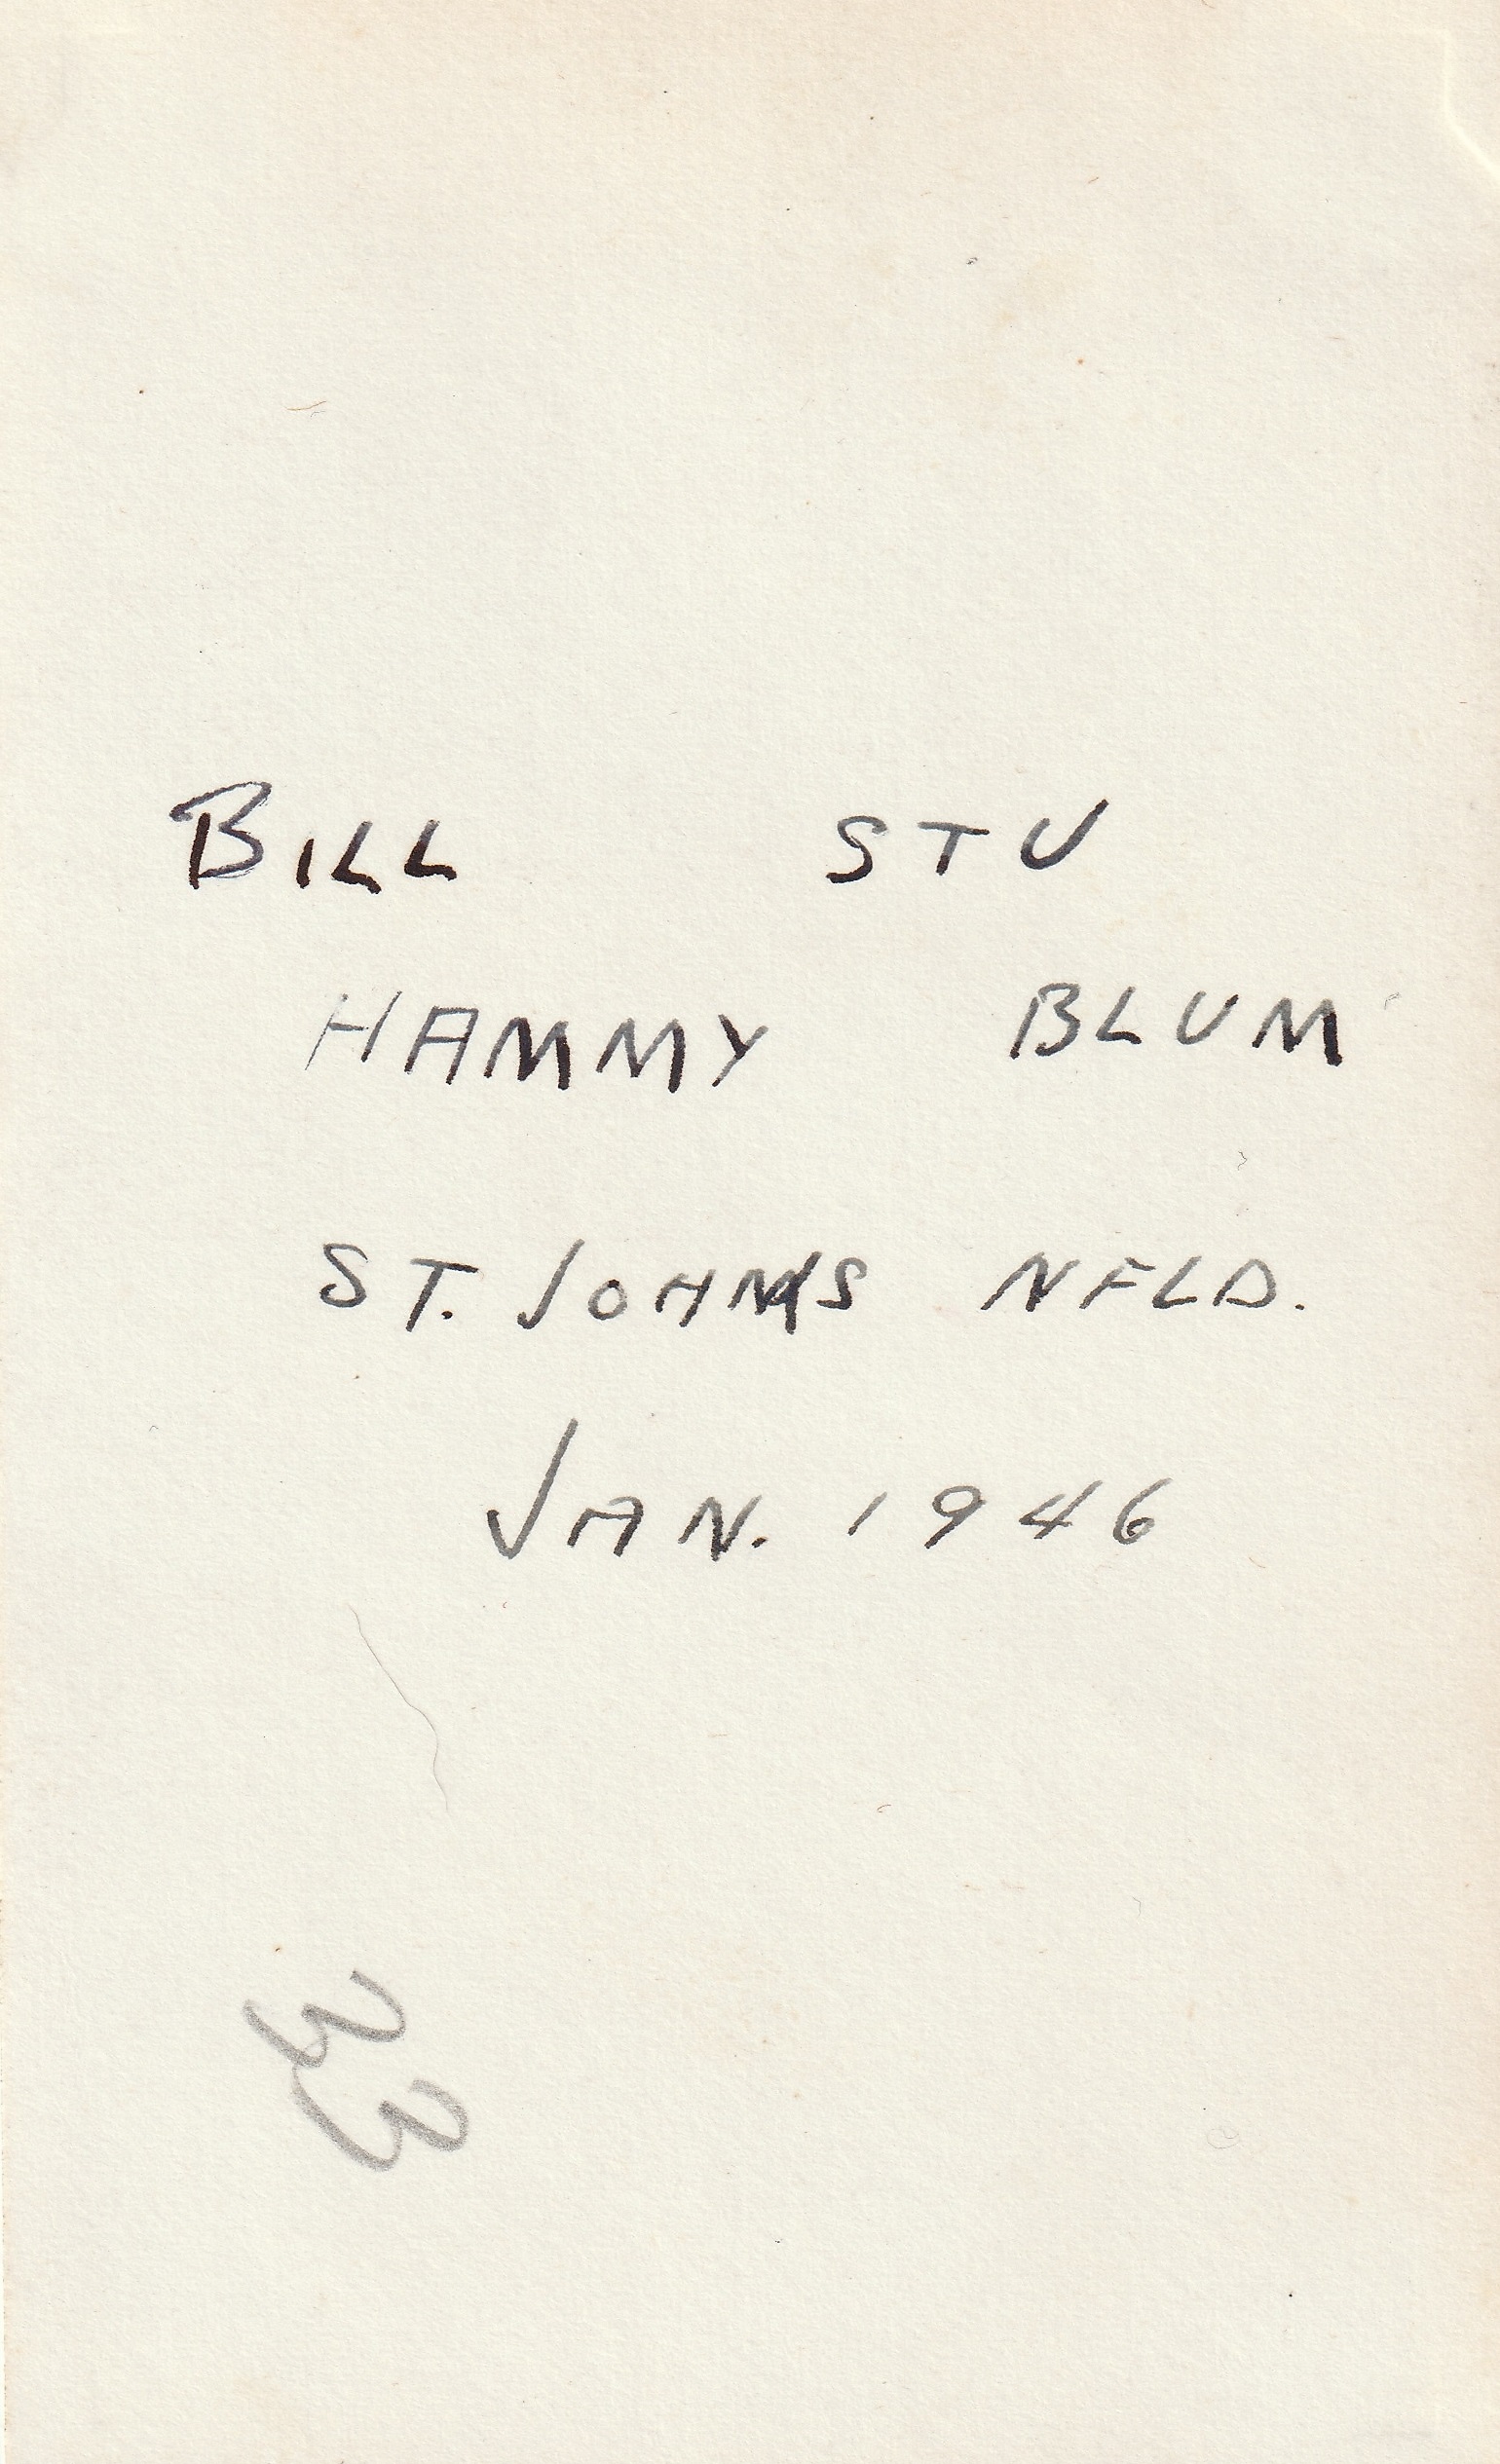 BILL STU
HAMMY BLUM
ST. JOHNS NFLD.
JAN. 1946
33